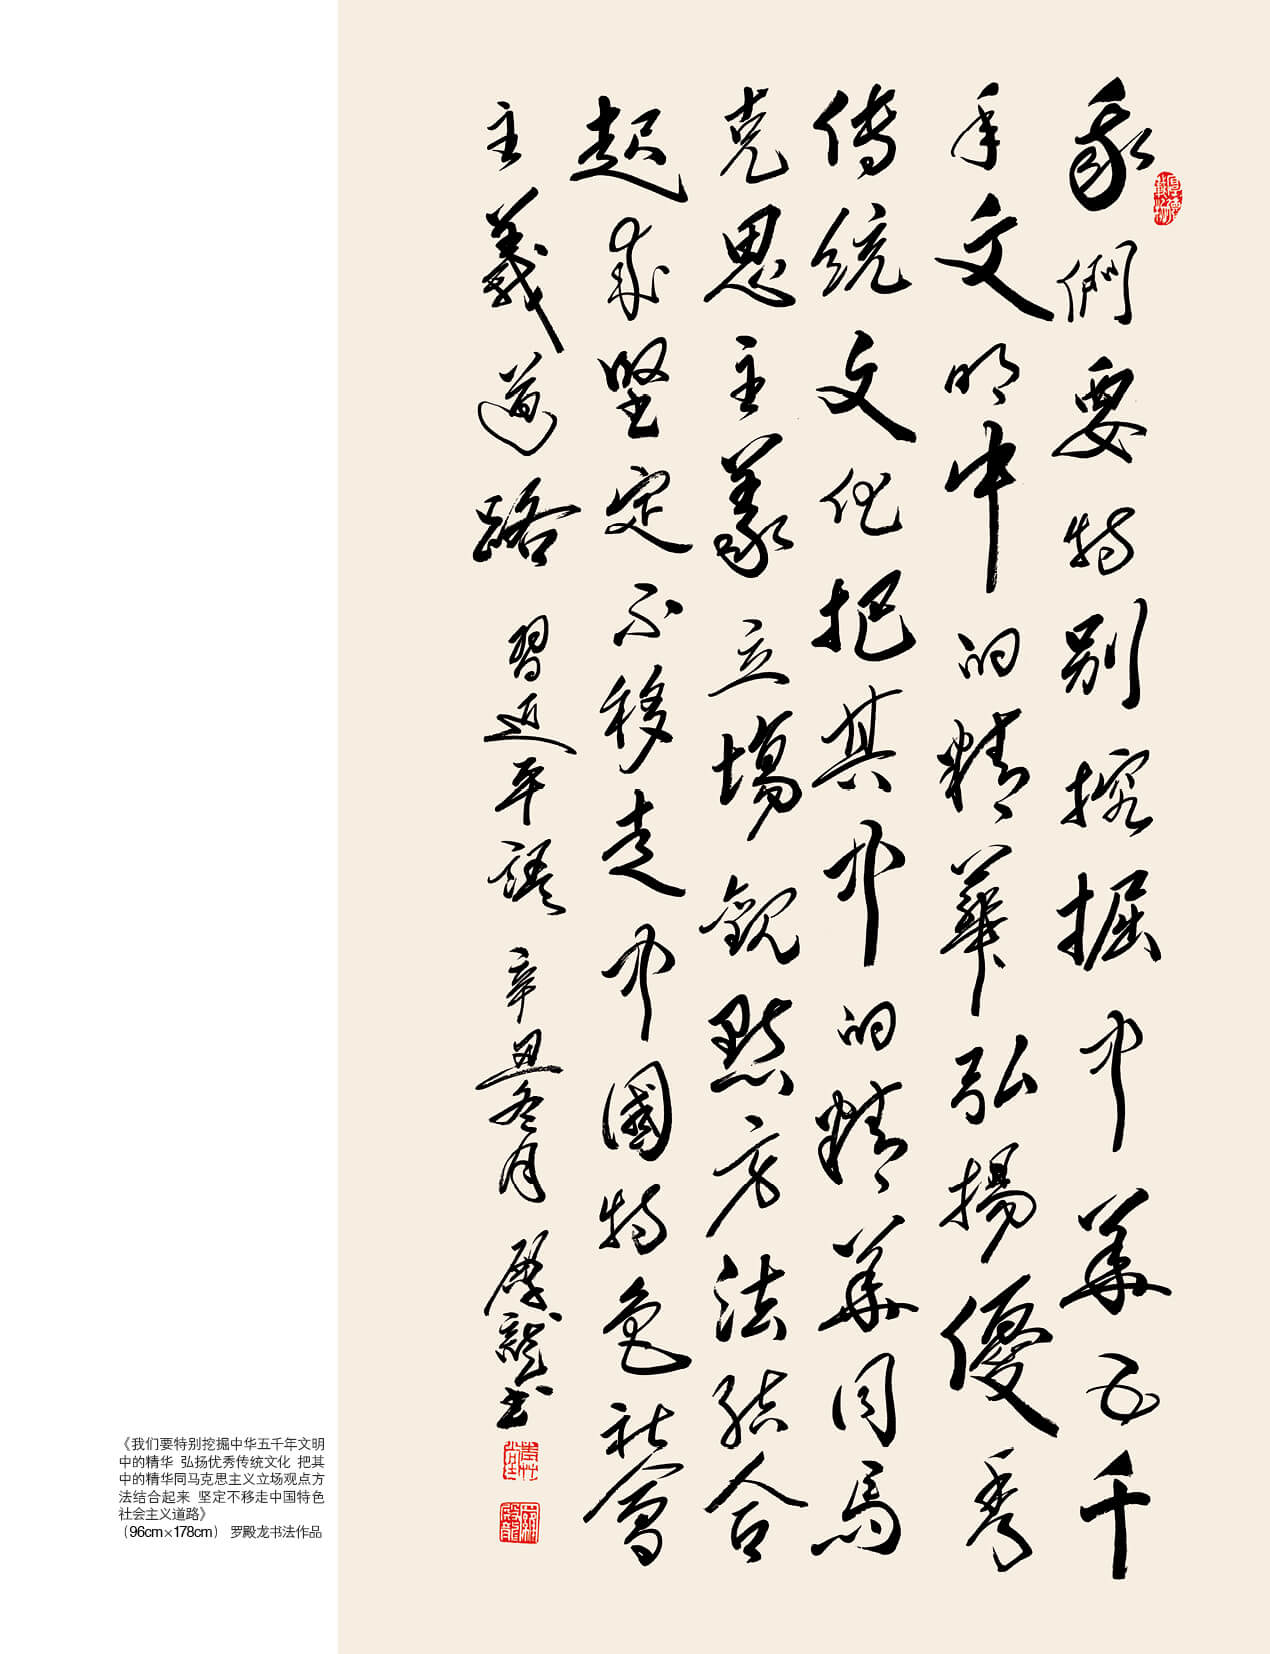 我們要特别挖掘中華五千
年文明中的精華弘揚優秀
傳統文化把其中的精華同馬
克思主義立場觀點方法结合
起来堅定不移走中國特色社會
主義道路 習近平語 辛丑冬月 殿龍书
《我们要特别挖掘中华五千年文明
中的精华 弘扬优秀传统文化 把其
中的精华同马克思主义立场观点方
法结合起来 坚定不移走中国特色
社会主义道路》
（96cm×178cm） 罗殿龙书法作品